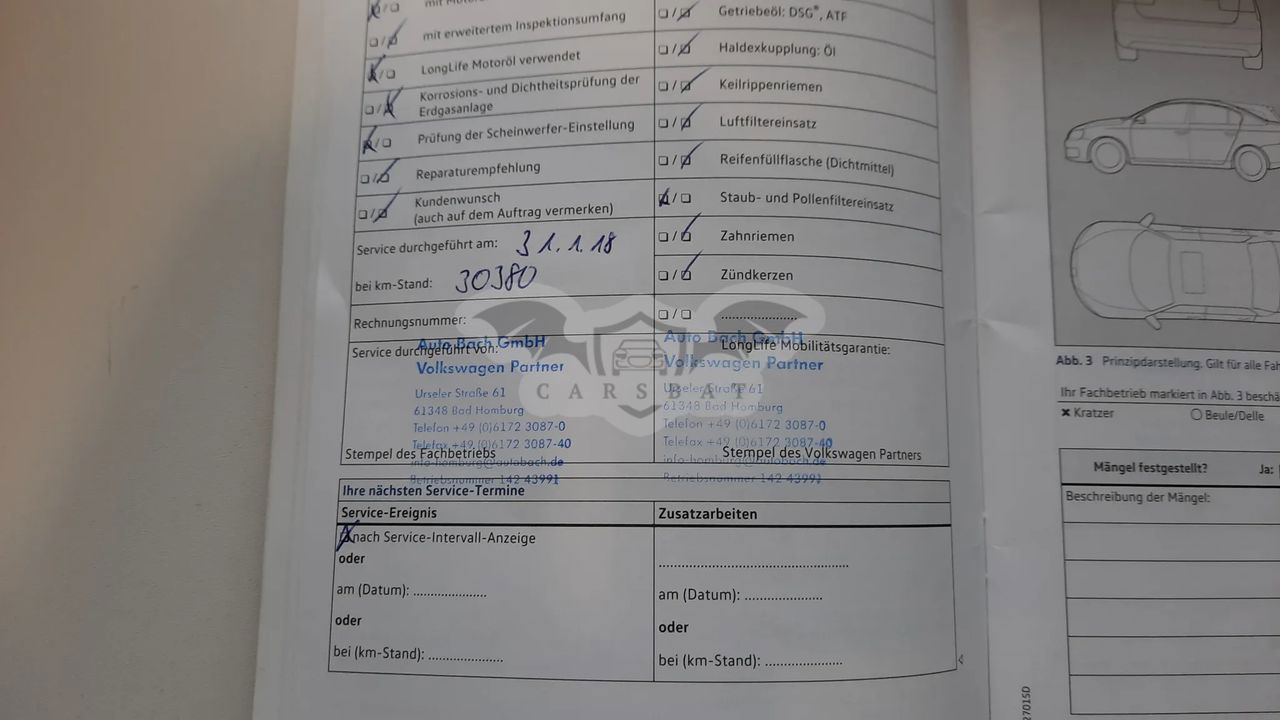 mit
mit erweitertem Inspektionsumfang
LongLife Motoröl verwendet
Korrosions- und Dichtheitsprüfung der
Erdgasanlage
Prüfung der Scheinwerfer-Einstellung
Reparaturempfehlung
Kundenwunsch
(auch auf dem Auftrag vermerken)
Service durchgeführt am: 31.1.18
bei km-Stand: 30380
Rechnungsnummer:
Service durchgeführt von:
Auto Bach GmbH
Volkswagen Partner
Urseler Straße 61
61348 Bad Homburg
Telefon +49 (0)6172 3087-0
Telefax +49 (0)6172 3087-40
info-homburg@autobach.de
Betriebsnummer 142 43991
Stempel des Fachbetriebs
Getriebeöl: DSG®, ATF
Haldexkupplung: Öl
Keilrippenriemen
Luftfiltereinsatz
Reifenfüllflasche (Dichtmittel)
Staub- und Pollenfiltereinsatz
Zahnriemen
Zündkerzen
....................
LongLife Mobilitätsgarantie:
Auto Bach GmbH
Volkswagen Partner
Urseler Straße 61
61348 Bad Homburg
Telefon +49 (0)6172 3087-0
Telefax +49 (0)6172 3087-40
info-homburg@autobach.de
Betriebsnummer 142 43991
Stempel des Volkswagen Partners
CARSBAT
Ihre nächsten Service-Termine
Service-Ereignis
nach Service-Intervall-Anzeige
oder
am (Datum): ....................
oder
bei (km-Stand): ....................
Zusatzarbeiten
..................................................
am (Datum): ....................
oder
bei (km-Stand): ....................
Abb. 3 Prinzipdarstellung. Gilt für alle
Ihr Fachbetrieb markiert in Abb. 3
Kratzer
Beule/Delle
Mängel festgestellt? Ja:
Beschreibung der Mängel:
27015D